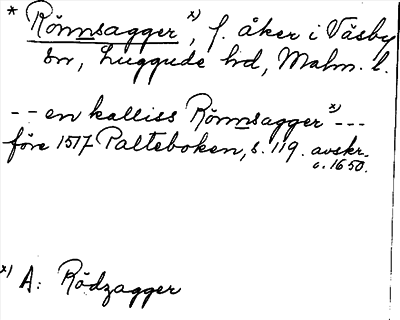 * Römnsagger x), f. åker i Väsby
sn, Luggude hd, Malm. l.
-- en kalliss Römnsagger x) ---
före 1517 Palteboken, s. 119. avskr.
c. 1650.
x) A: Rödzagger